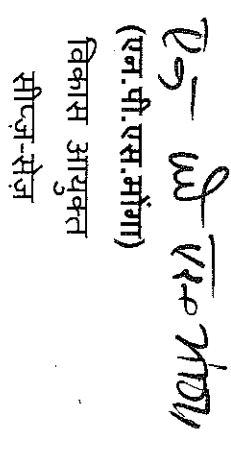 (एन.पी.एस.मोंगा)
विकास आयुक्त
सीप्ज़-सेज़